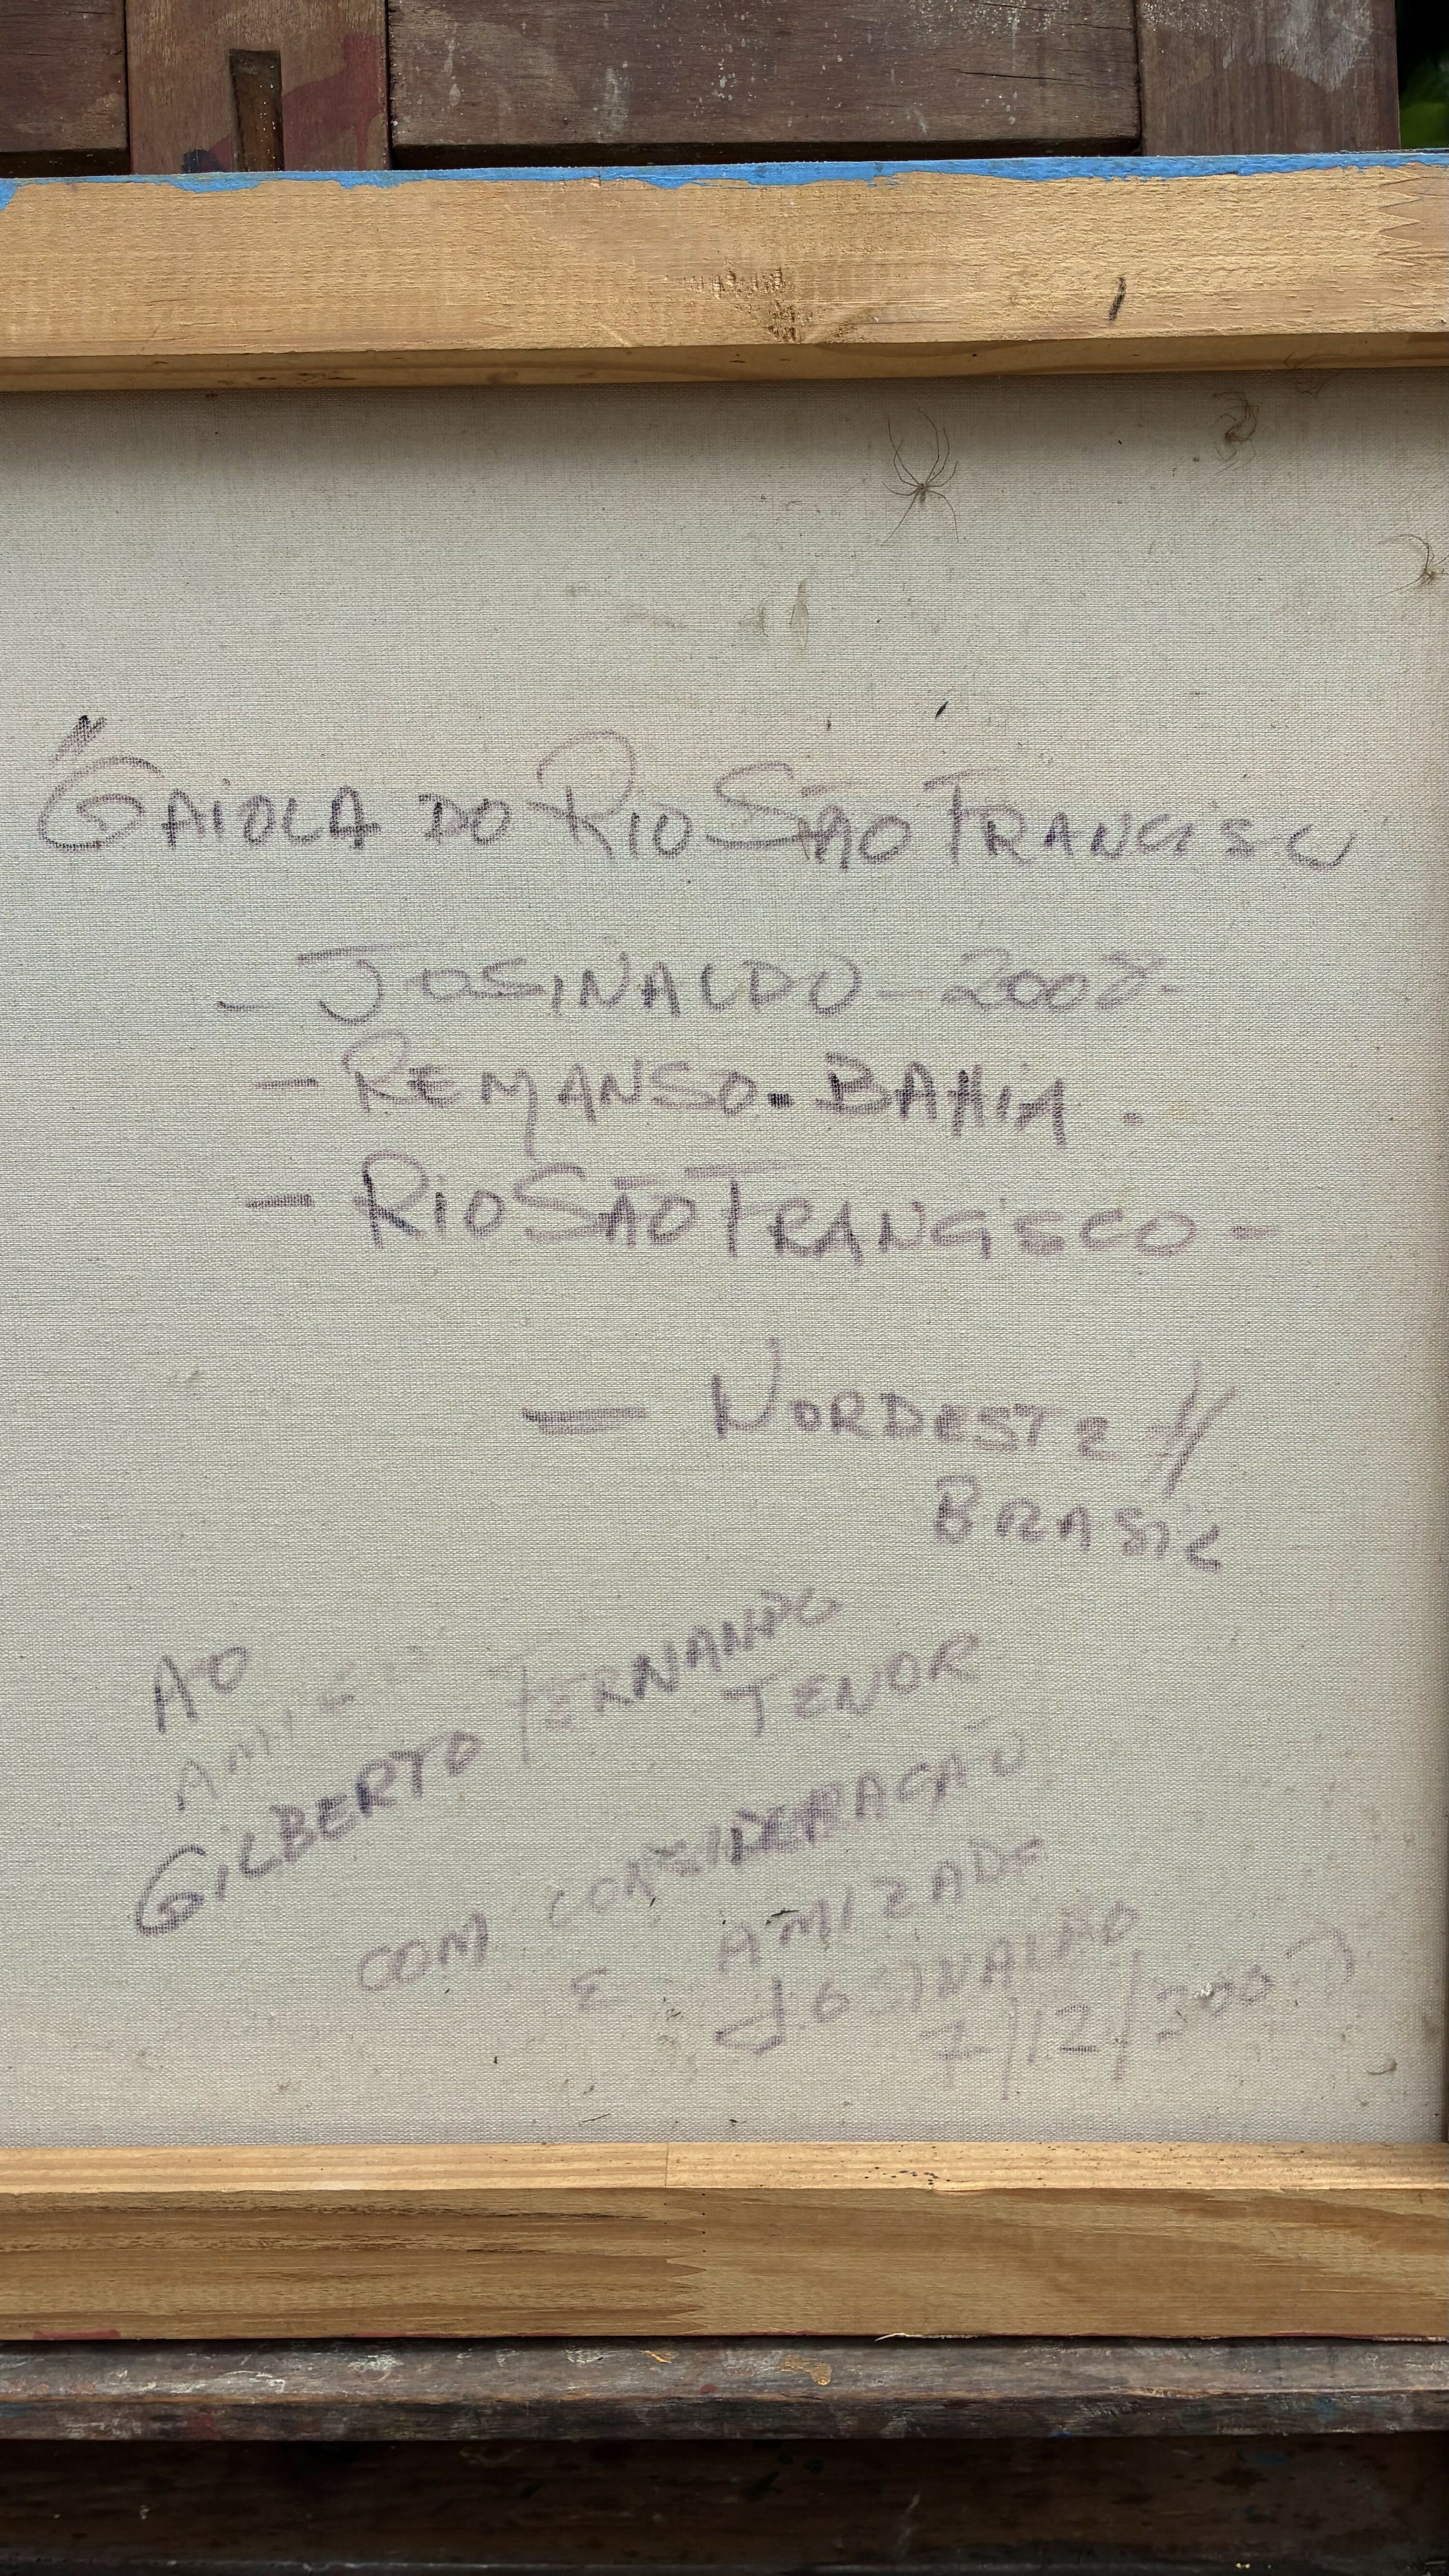 "GAIOLA DO RIO SÃO FRANCISCO
- JOSINALDO - 2007 -
- REMANSO - BAHIA .
- RIO SÃO FRANCISCO -
— NORDESTE //
BRASIL
AO
AMIGO
GILBERTO FERNANDO
TENOR
COM CONSIDERAÇÃO
E AMIZADE
JOSINALDO
7/12/2007